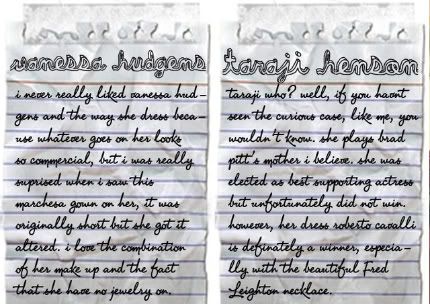 vanessa hudgens
i never really liked vanessa hud-
gens and the way she dress beca-
use whatever goes on her looks
so commercial, but i was really
suprised when i saw this
marchesa gown on her, it was
originally short but she got it
altered. i love the combination
of her make up and the fact
that she have no jewelry on.
taraji henson
taraji who? well, if you havnt
seen the curious case, like me, you
wouldn't know. she plays brad
pitt's mother i believe. she was
elected as best supporting actress
but unfortunately did not win.
however, her dress roberto cavalli
is definately a winner, especia-
lly with the beautiful Fred
Leighton necklace.